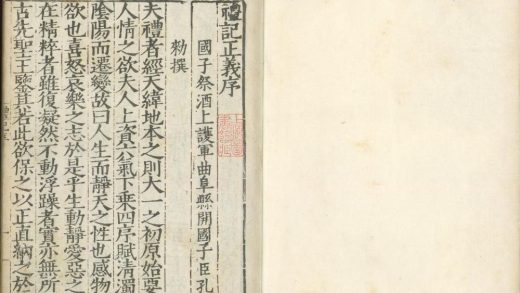 禮記正義序
國子祭酒上護軍曲阜縣開國子臣孔
勑撰
夫禮者經天緯地本之則大一之初原始要
人情之欲夫人上資六氣下乘四序賦清濁
陰陽而遷變故曰人生而靜天之性也感物
欲也喜怒哀樂之志於是乎生動靜愛惡之
在精粹者雖復凝然不動浮躁者實亦無所
古先聖王鑒其若此欲保之以正直納之於